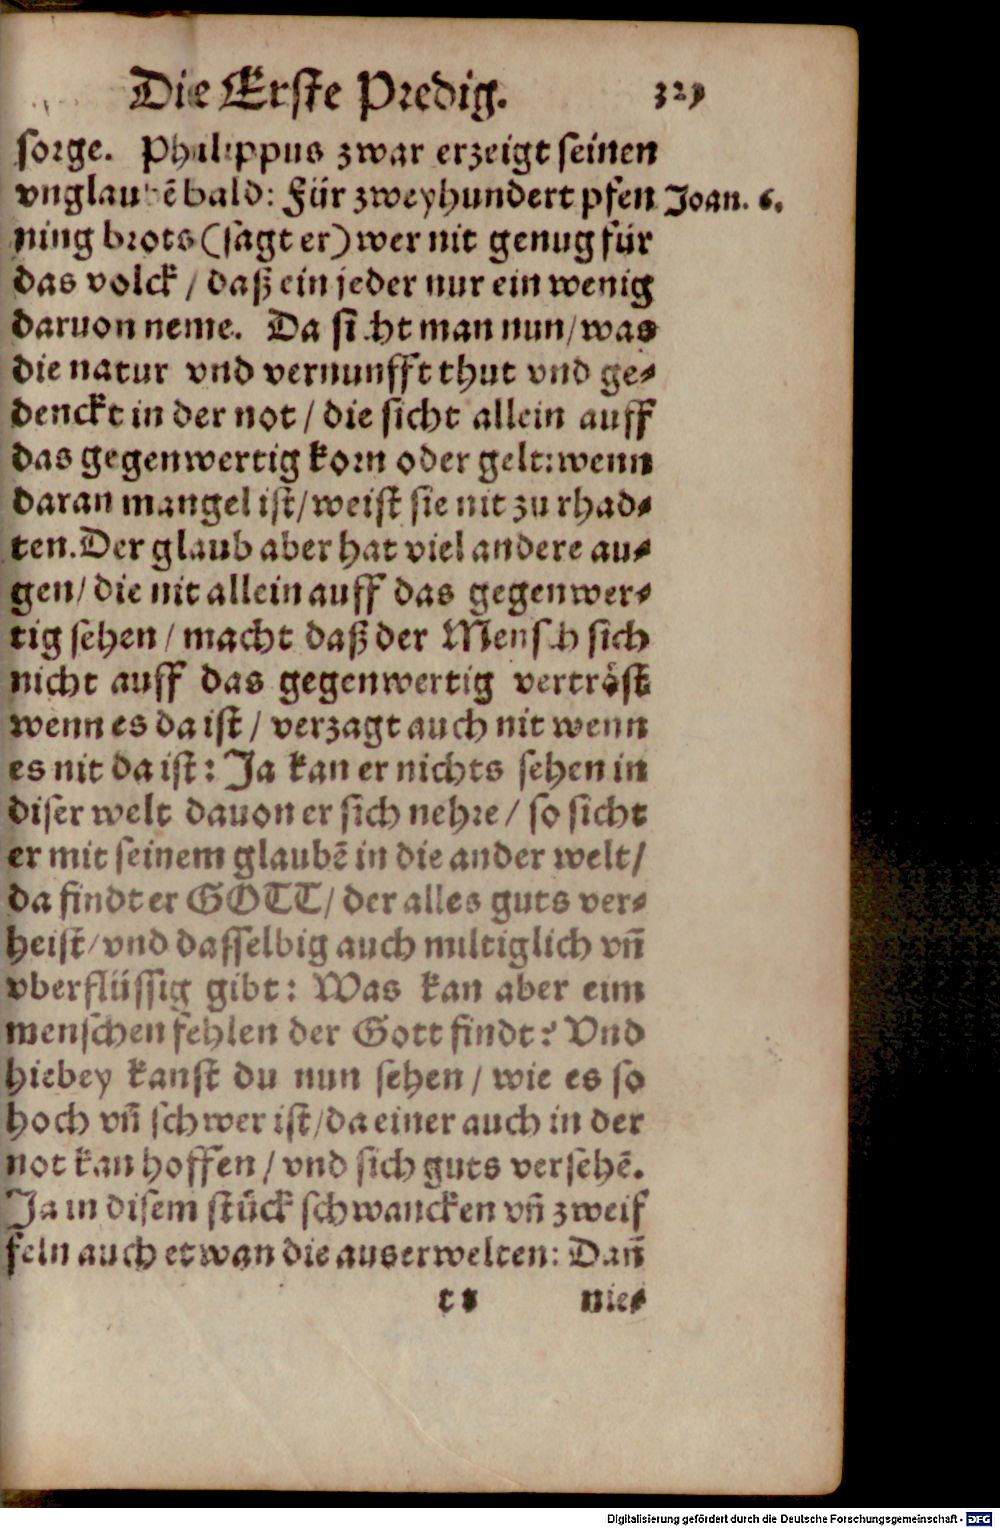 Die Erste Predig. 329
sorge. Philippus zwar erzeigt seinen
vnglaubē bald: Für zweyhundert pfen Joan. 6.
ning brots (sagt er) wer nit genug für
das volck / daß ein jeder nur ein wenig
daruon neme. Da sicht man nun / was
die natur vnd vernunfft thut vnd ge-
denckt in der not / die sicht allein auff
das gegenwertig korn oder gelt: wenn
daran mangel ist / weist sie nit zu rhad-
ten. Der glaub aber hat viel andere au-
gen / die nit allein auff das gegenwer-
tig sehen / macht daß der Mensch sich
nicht auff das gegenwertig vertröst
wenn es da ist / verzagt auch nit wenn
es nit da ist: Ja kan er nichts sehen in
diser welt dauon er sich nehre / so sicht
er mit seinem glaubē in die ander welt /
da findt er GOTT / der alles guts ver-
heist / vnd dasselbig auch miltiglich vn̄
vberflüssig gibt: Was kan aber eim
menschen fehlen der Gott findt? Vnd
hiebey kanst du nun sehen / wie es so
hoch vn̄ schwer ist / da einer auch in der
not kan hoffen / vnd sich guts versehē.
Ja in disem stück schwancken vn̄ zweif
feln auch etwan die auserwelten: Dan̄
nie-
Digitalisierung gefördert durch die Deutsche Forschungsgemeinschaft - DFG